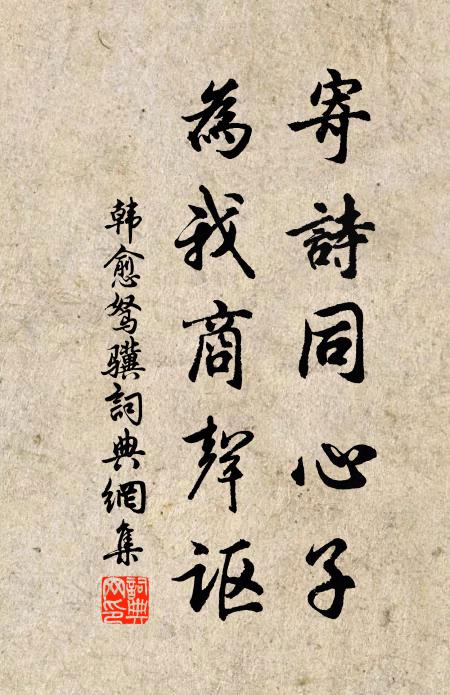 寄詩同心子
為我商聲謳
韩愈驽骥詞典網集
詞典網印